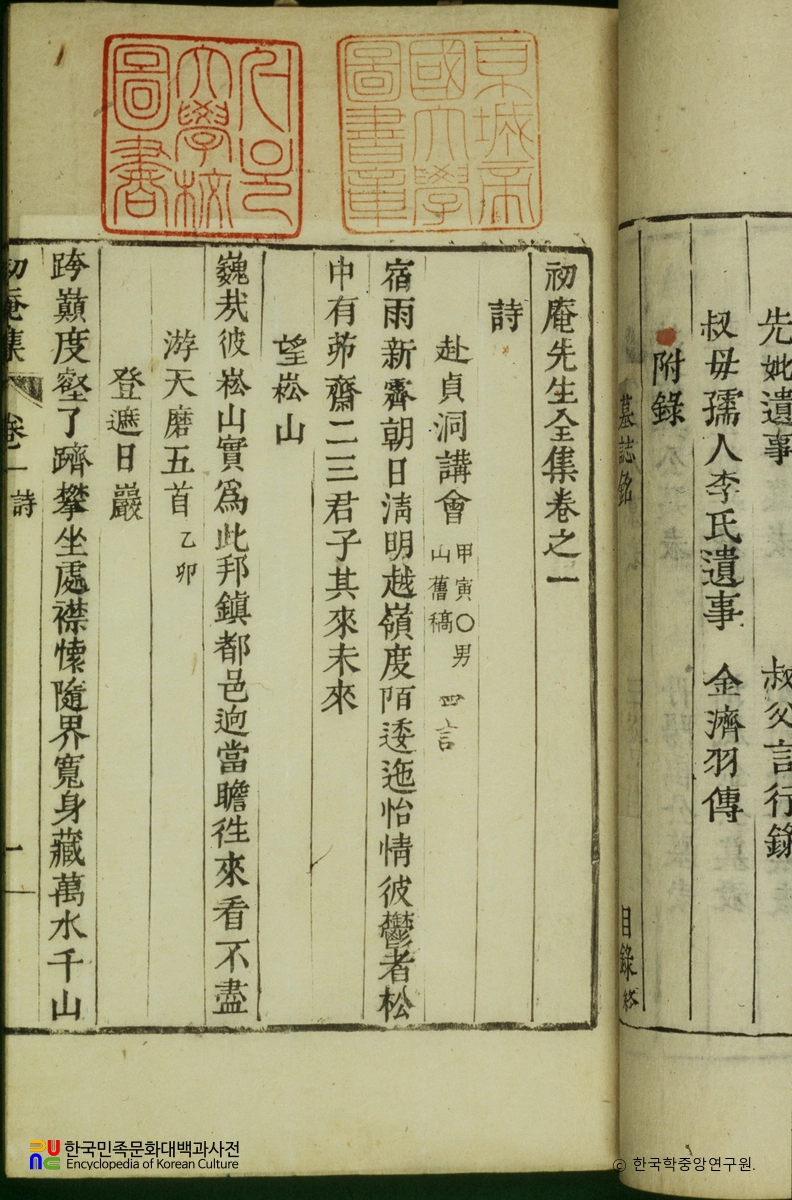 先妣遺事 叔父言行錄
叔母孺人李氏遺事 金濟羽傳
附錄
墓誌銘
目錄終
京城帝
國大學
圖書章
서울
大學校
圖書
初庵先生全集卷之一
詩
赴貞洞講會 甲寅○男
山舊稿 四言
宿雨新霽朝日淸明越嶺度陌逶迤怡情彼鬱者松
中有茆齋二三君子其來未來
望崧山
巍㢤彼崧山實爲此邦鎭都邑逈當瞻徃來看不盡
游天磨五首 乙卯
登遮日巖
跨巓度壑了躋攀坐處襟懷隨界寬身藏萬水千山
初庵集 卷一 詩 一
한국민족문화대백과사전
Encyclopedia of Korean Culture
© 한국학중앙연구원.